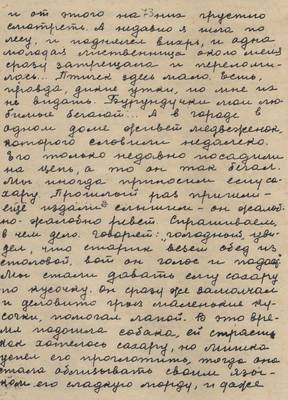 и от этого на них грустно
смотреть. А недавно я шла по
лесу, и поднялся вихрь, и одна
молодая лиственница около меня
сразу затрещала и переломи-
лась... Птичек здесь мало. Есть,
правда, дикие утки, но мне их
не видать. Бурундучки мои лю-
бимые бегают... А в городе в
одном доме живет медвежонок,
которого словили недалеко.
Его только недавно посадили
на цепь, а то он так бегал.
Мы иногда приносим ему са-
хару. Прошлый раз пришли -
ещё издали слышим - он жалоб-
но-жалобно ревет. Спрашиваем,
в чем дело. Говорят: "голодный, уви-
дел, что старик везет обед из
столовой, вот он голос и подает".
Мы стали давать ему сахару
по кусочку. Он сразу же замолчал
и деловито грыз маленькие ку-
сочки, помогал лапой. В это вре-
мя подошла собака, ей страсть
как хотелось сахару, но мишка
успел его проглотить, тогда она
стала облизывать своим язы-
ком его сладкую морду, и даже